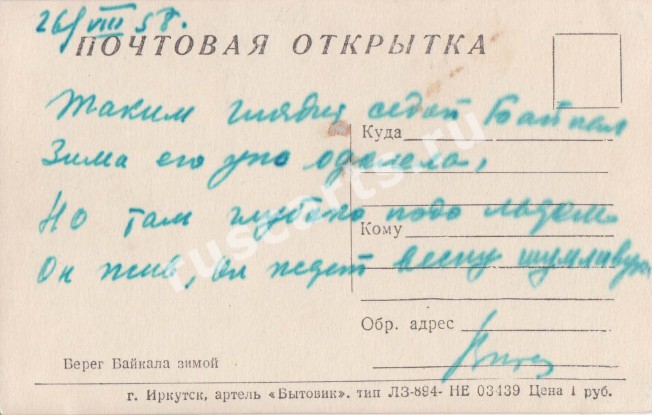 26/VIII 58.
ПОЧТОВАЯ ОТКРЫТКА
Таким глядит седой Байкал
Куда
Зима его уж одолела,
Но там глубоко подо льдом
Кому
Он жив, он ждет весну шумливую
Обр. адрес
Берег Байкала зимой
г. Иркутск, артель «Бытовик». тип ЛЗ-894- НЕ 03439 Цена 1 руб.
ruscarts.ru